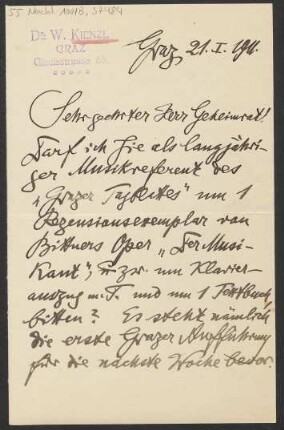 55 Nachl 100/B, 37484
Dr. W. KIENZL
GRAZ
Graz, 21.I.1911.
Sehr geehrter Herr Geheimrat!
Darf ich Sie als langjähri-
ger Musikreferent des
„Grazer Tagblattes" um 1
Rezensionsexemplar von
Bittners Oper „Der Musi-
kant", u. zw. um Klavier-
auszug m. T. und um 1 Textbuch
bitten? Es steht nämlich
die erste Grazer Aufführung
für die nächste Woche bevor.